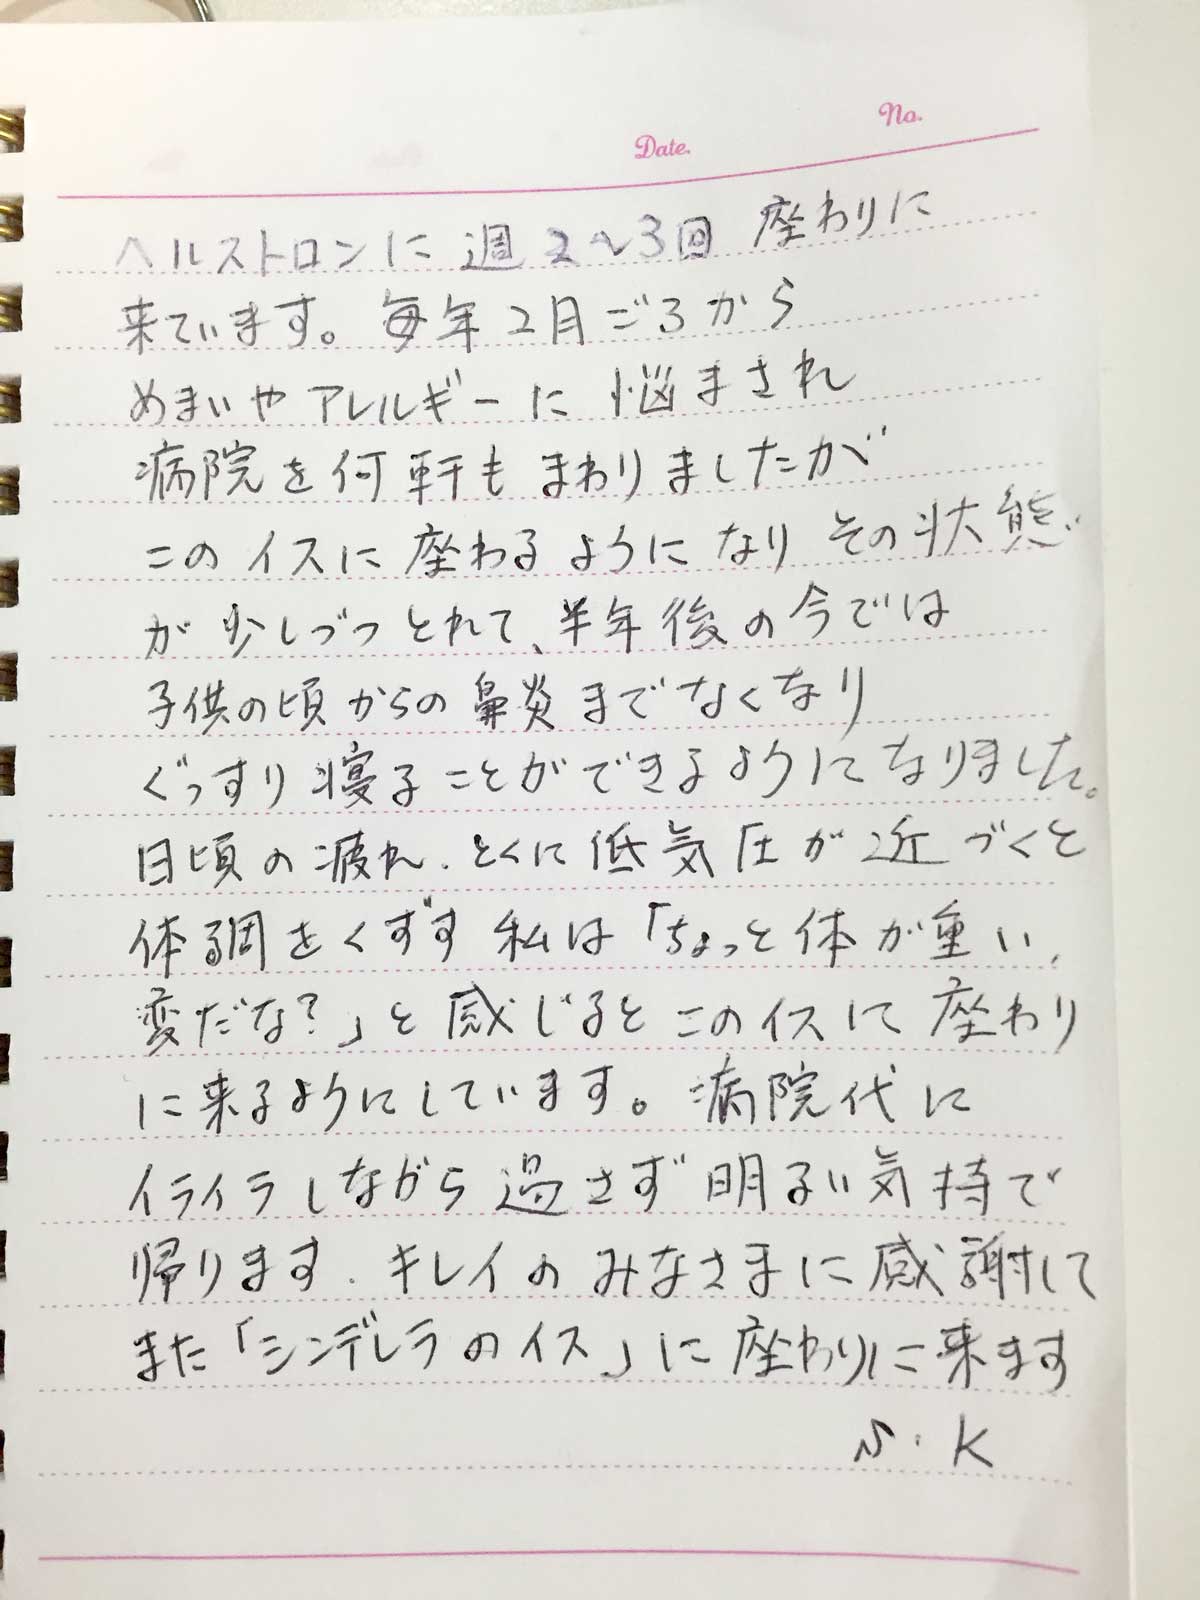 No.
Date.
ヘルストロンに週2〜3回 座わりに
来ています。毎年2月ごろから
めまいやアレルギーに悩まされ
病院を何軒もまわりましたが
このイスに座わるようになり その状態
が少しづつとれて、半年後の今では
子供の頃からの鼻炎までなくなり
ぐっすり寝ることができるようになりました。
日頃の疲れ、とくに低気圧が近づくと
体調をくずす私は「ちょっと体が重い、
変だな?」と感じるとこのイスに座わり
に来るようにしています。病院代に
イライラしながら過さず明るい気持で
帰ります、キレイのみなさまに感謝して
また「シンデレラのイス」に座わりに来ます
N.K